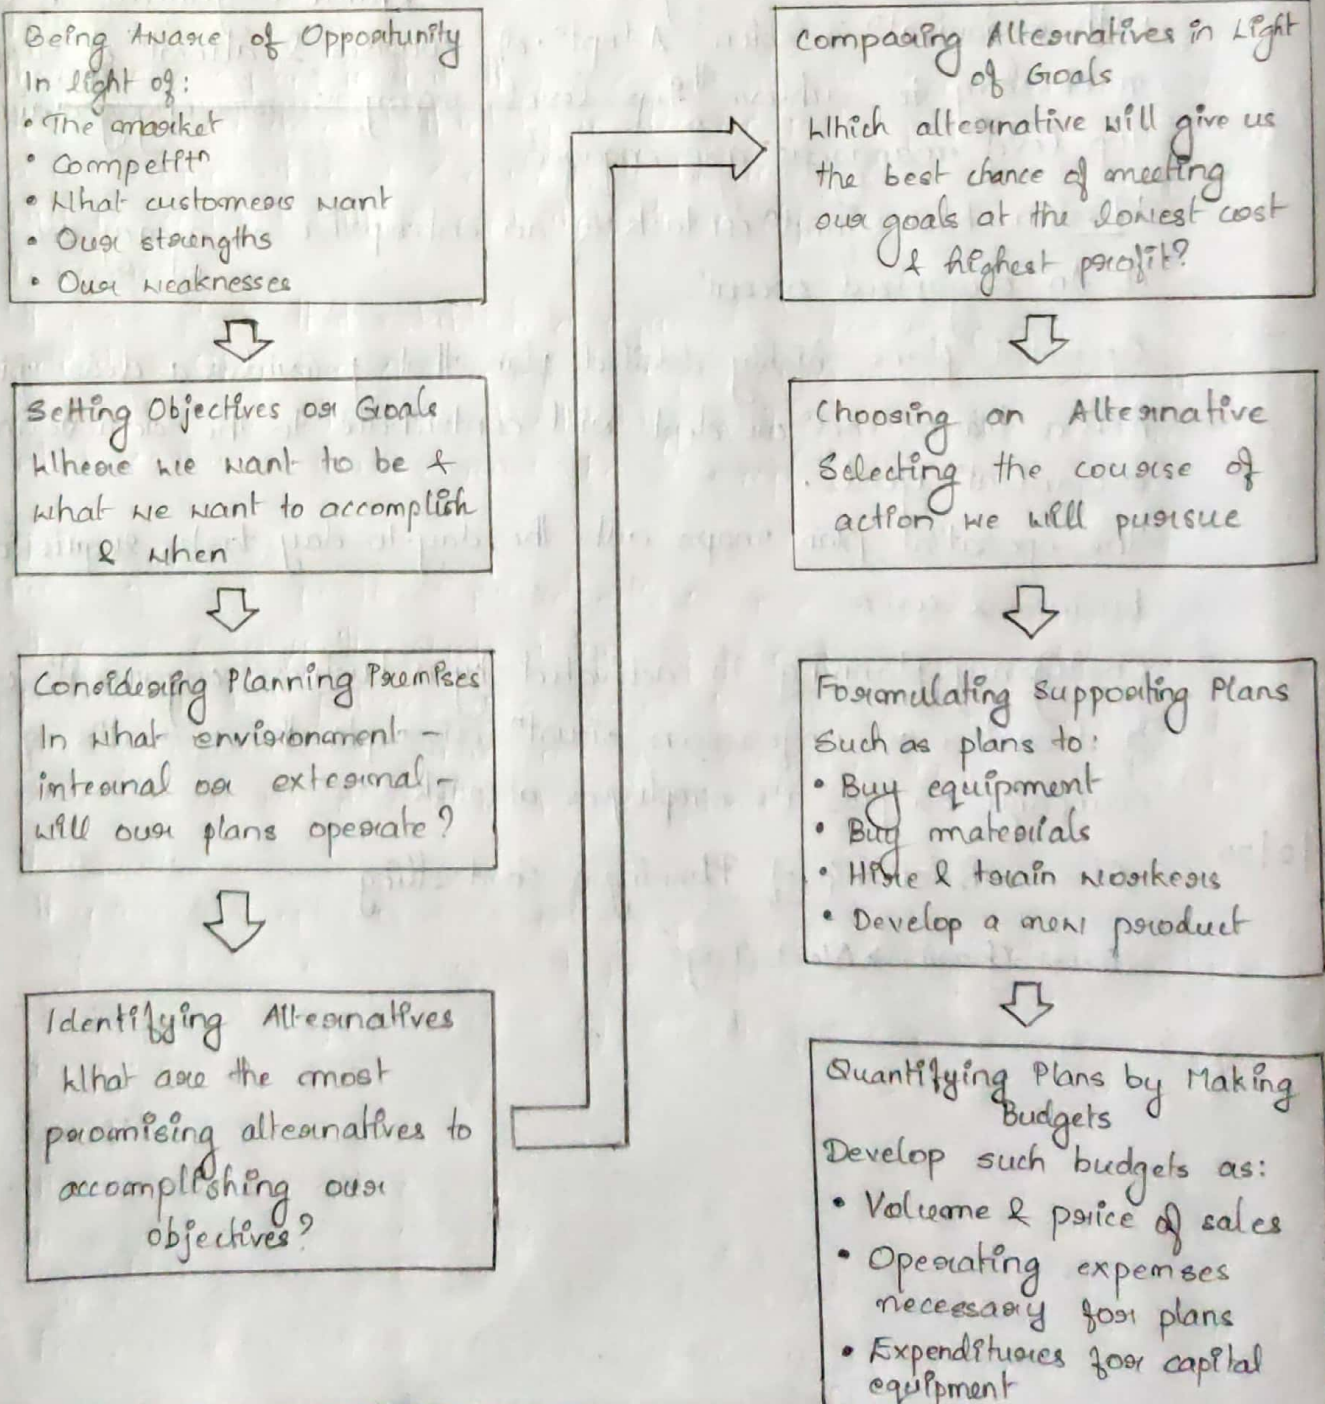 Being Aware of Opportunity
In light of:
• The market
• Competitn
• What customers want
• Our strengths
• Our weaknesses
Setting Objectives or Goals
Where we want to be &
what we want to accomplish
& when
Considering Planning Premises
In what environment -
internal or external -
will our plans operate?
Identifying Alternatives
What are the most
promising alternatives to
accomplishing our
objectives?
Comparing Alternatives in Light
of Goals
Which alternative will give us
the best chance of meeting
our goals at the lowest cost
& highest profit?
Choosing an Alternative
Selecting the course of
action we will pursue
Formulating Supporting Plans
Such as plans to:
• Buy equipment
• Buy materials
• Hire & train workers
• Develop a new product
Quantifying Plans by Making
Budgets
Develop such budgets as:
• Volume & price of sales
• Operating expenses
necessary for plans
• Expenditures for capital
equipment